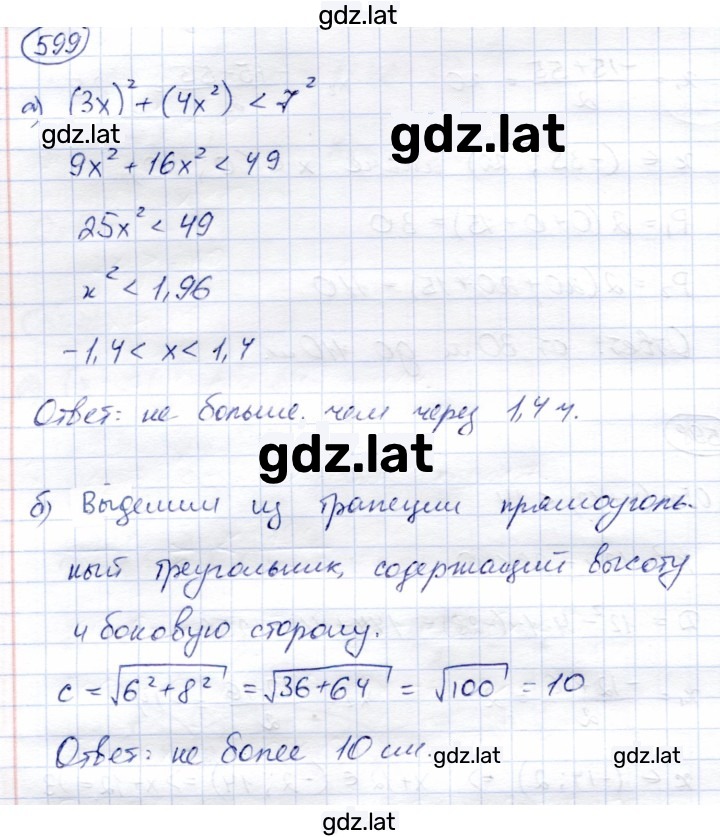 gdz.lat
599
а) (3x)² + (4x²) < 7²
gdz.lat
gdz.lat
9x² + 16x² < 49
25x² < 49
x² < 1,96
-1,4 < x < 1,4
Ответ: не больше. чем через 1,4 ч.
gdz.lat
б) Выделим из трапеции прямоуголь-
ный треугольник, содержащий высоту
и боковую сторону.
c = √6²+8² = √36+64 = √100 = 10
Ответ: не более 10 см.
gdz.lat
gdz.lat
gdz.lat